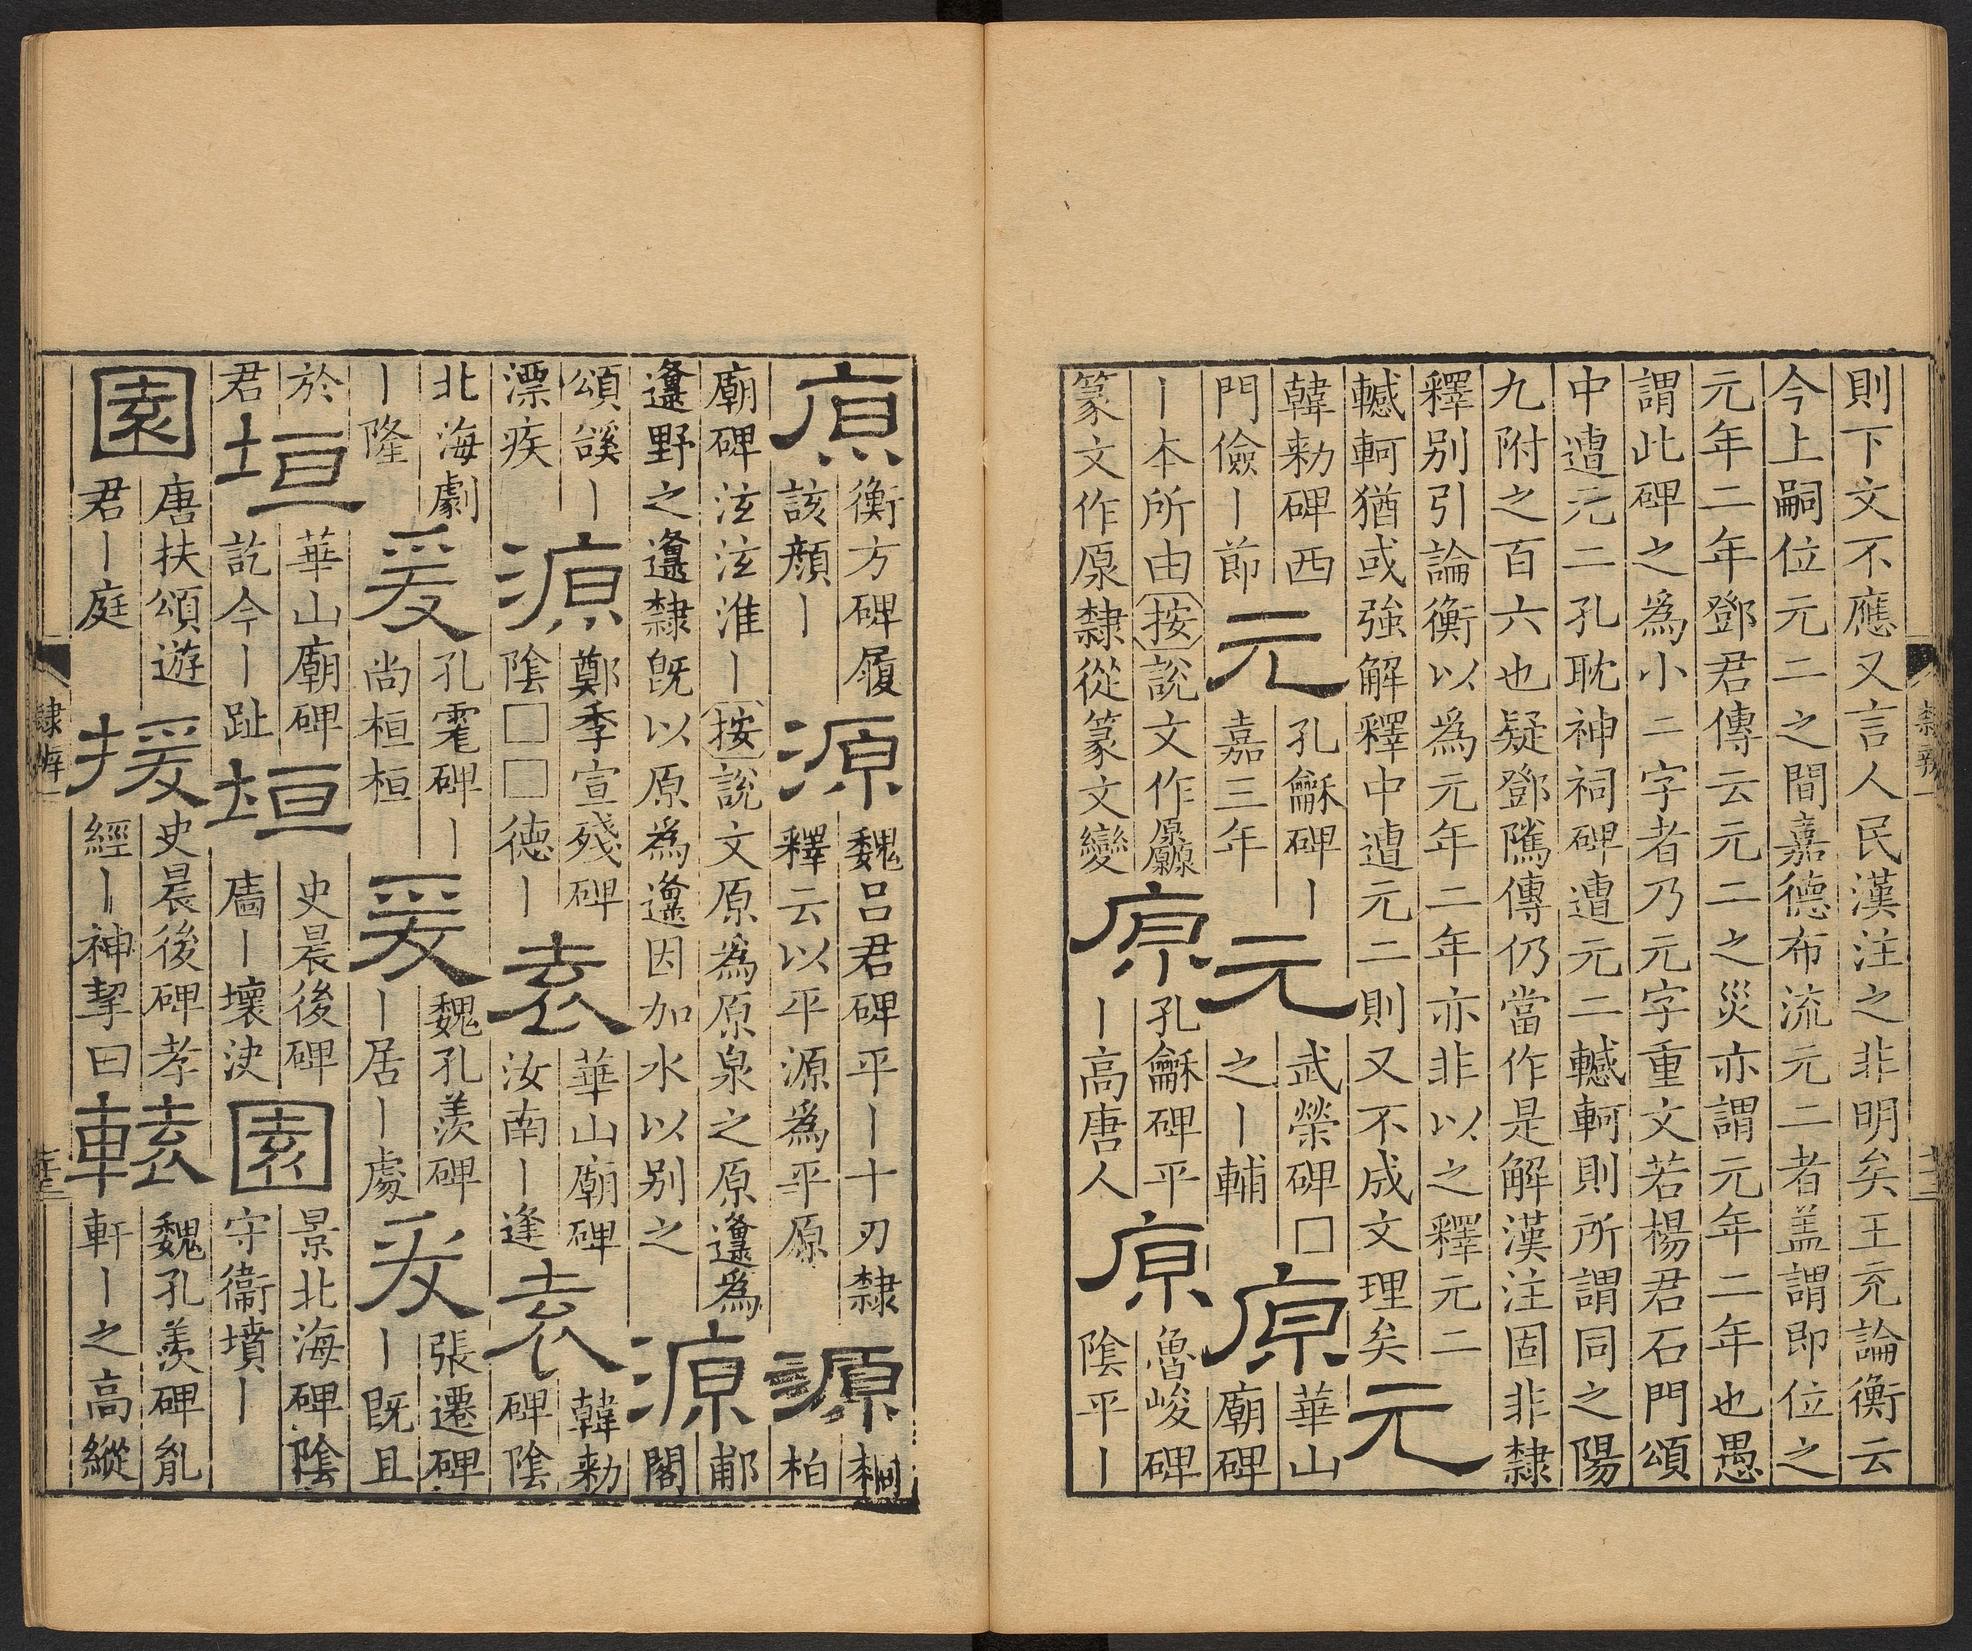 則下文不應又言人民漢注之非明矣王充論衡云
今上嗣位元二之間嘉德布流元二者盖謂即位之
元年二年鄧君傳云元二之災亦謂元年二年也愚
謂此碑之爲小二字者乃元字重文若楊君石門頌
中遭元二孔耽神祠碑遭元二轗軻則所謂同之陽
九附之百六也疑鄧隲傳仍當作是解漢注固非隸
釋别引論衡以爲元年二年亦非以之釋元二
轗軻猶或強解釋中遭元二則又不成文理矣
元
韓勑碑西
門儉丨節
元
孔龢碑丨
嘉三年
元
武榮碑□
之丨輔
原
華山
廟碑
丨本所由按說文作厵
篆文作原隸從篆文變
原
孔龢碑平
丨高唐人
原
魯峻碑
陰平丨
原
衡方碑履
該顏丨
源
魏呂君碑平丨十刃隸
釋云以平源爲平原
源
桐
柏
廟碑泫泫淮丨按說文原爲原泉之原邍爲
邍野之邍隸旣以原爲邍因加水以别之
源
郙
閣
頌谿丨
漂疾
源
鄭季宣殘碑
陰□□德丨
袁
華山廟碑
汝南丨逢
袁
韓勑
碑陰
北海劇
丨隆
爰
孔碑丨
尚桓桓
爰
魏孔羨碑
丨居丨處
爰
張遷碑
丨旣且
於
君
垣
華山廟碑
訖今丨趾
垣
史晨後碑
廧丨壞決
園
景北海碑陰
守衞墳丨
園
唐扶頌遊
君丨庭
援
史晨後碑孝
經丨神挈曰
轅
魏孔羨碑胤
軒丨之高縱